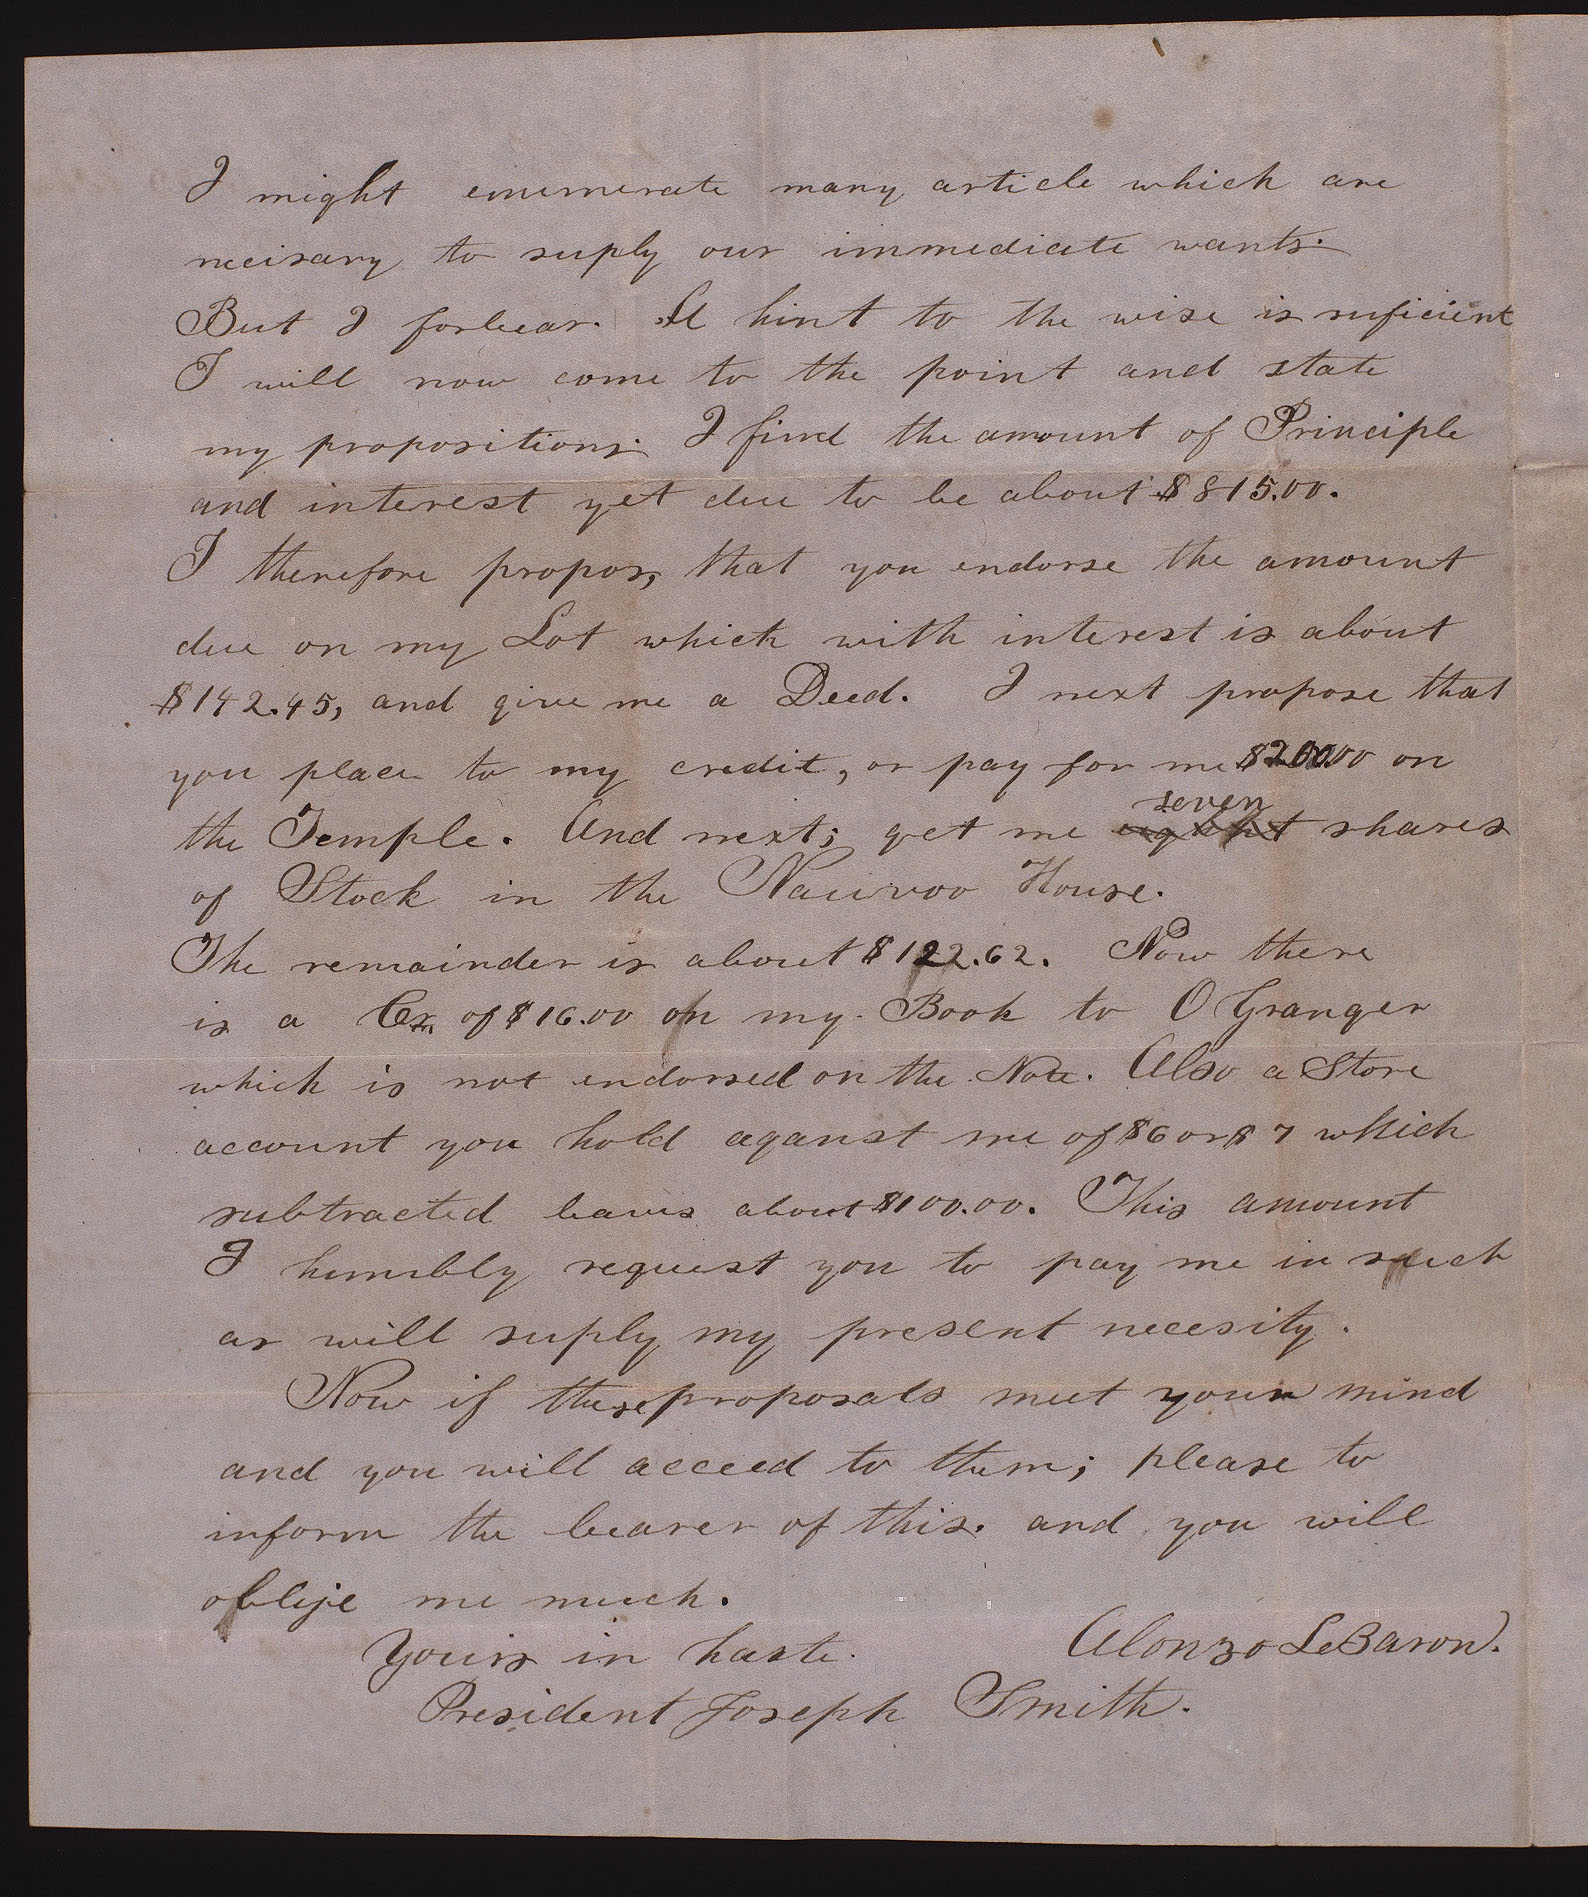 I might enumerate many article which are
necisary to suply our immediate wants.
But I forbear. A hint to the wise is suficient
I will now come to the point and state
my propositions. I find the amount of Principle
and interest yet due to be about $815.00.
I therefore propos, that you endorse the amount
due on my Lot which with interest is about
$142.45, and give me a Deed. I next propose that
you place to my credit, or pay for me $200.00 on
seven
the Temple. And next; get me eight shares
of Stock in the Nauvoo House.
The remainder is about $122.62. Now there
is a Cr. of $16.00 on my Book to O Granger
which is not endorsed on the Note. Also a Store
account you hold aganst me of $6 or $7 which
subtracted leaves about $100.00. This amount
I humbly request you to pay me in such
as will suply my present necesity.
Now if these proposals meet your mind
and you will acceed to them; please to
inform the bearer of this. and you will
oblije me much.
Yours in haste. Alonzo LeBaron.
President Joseph Smith.